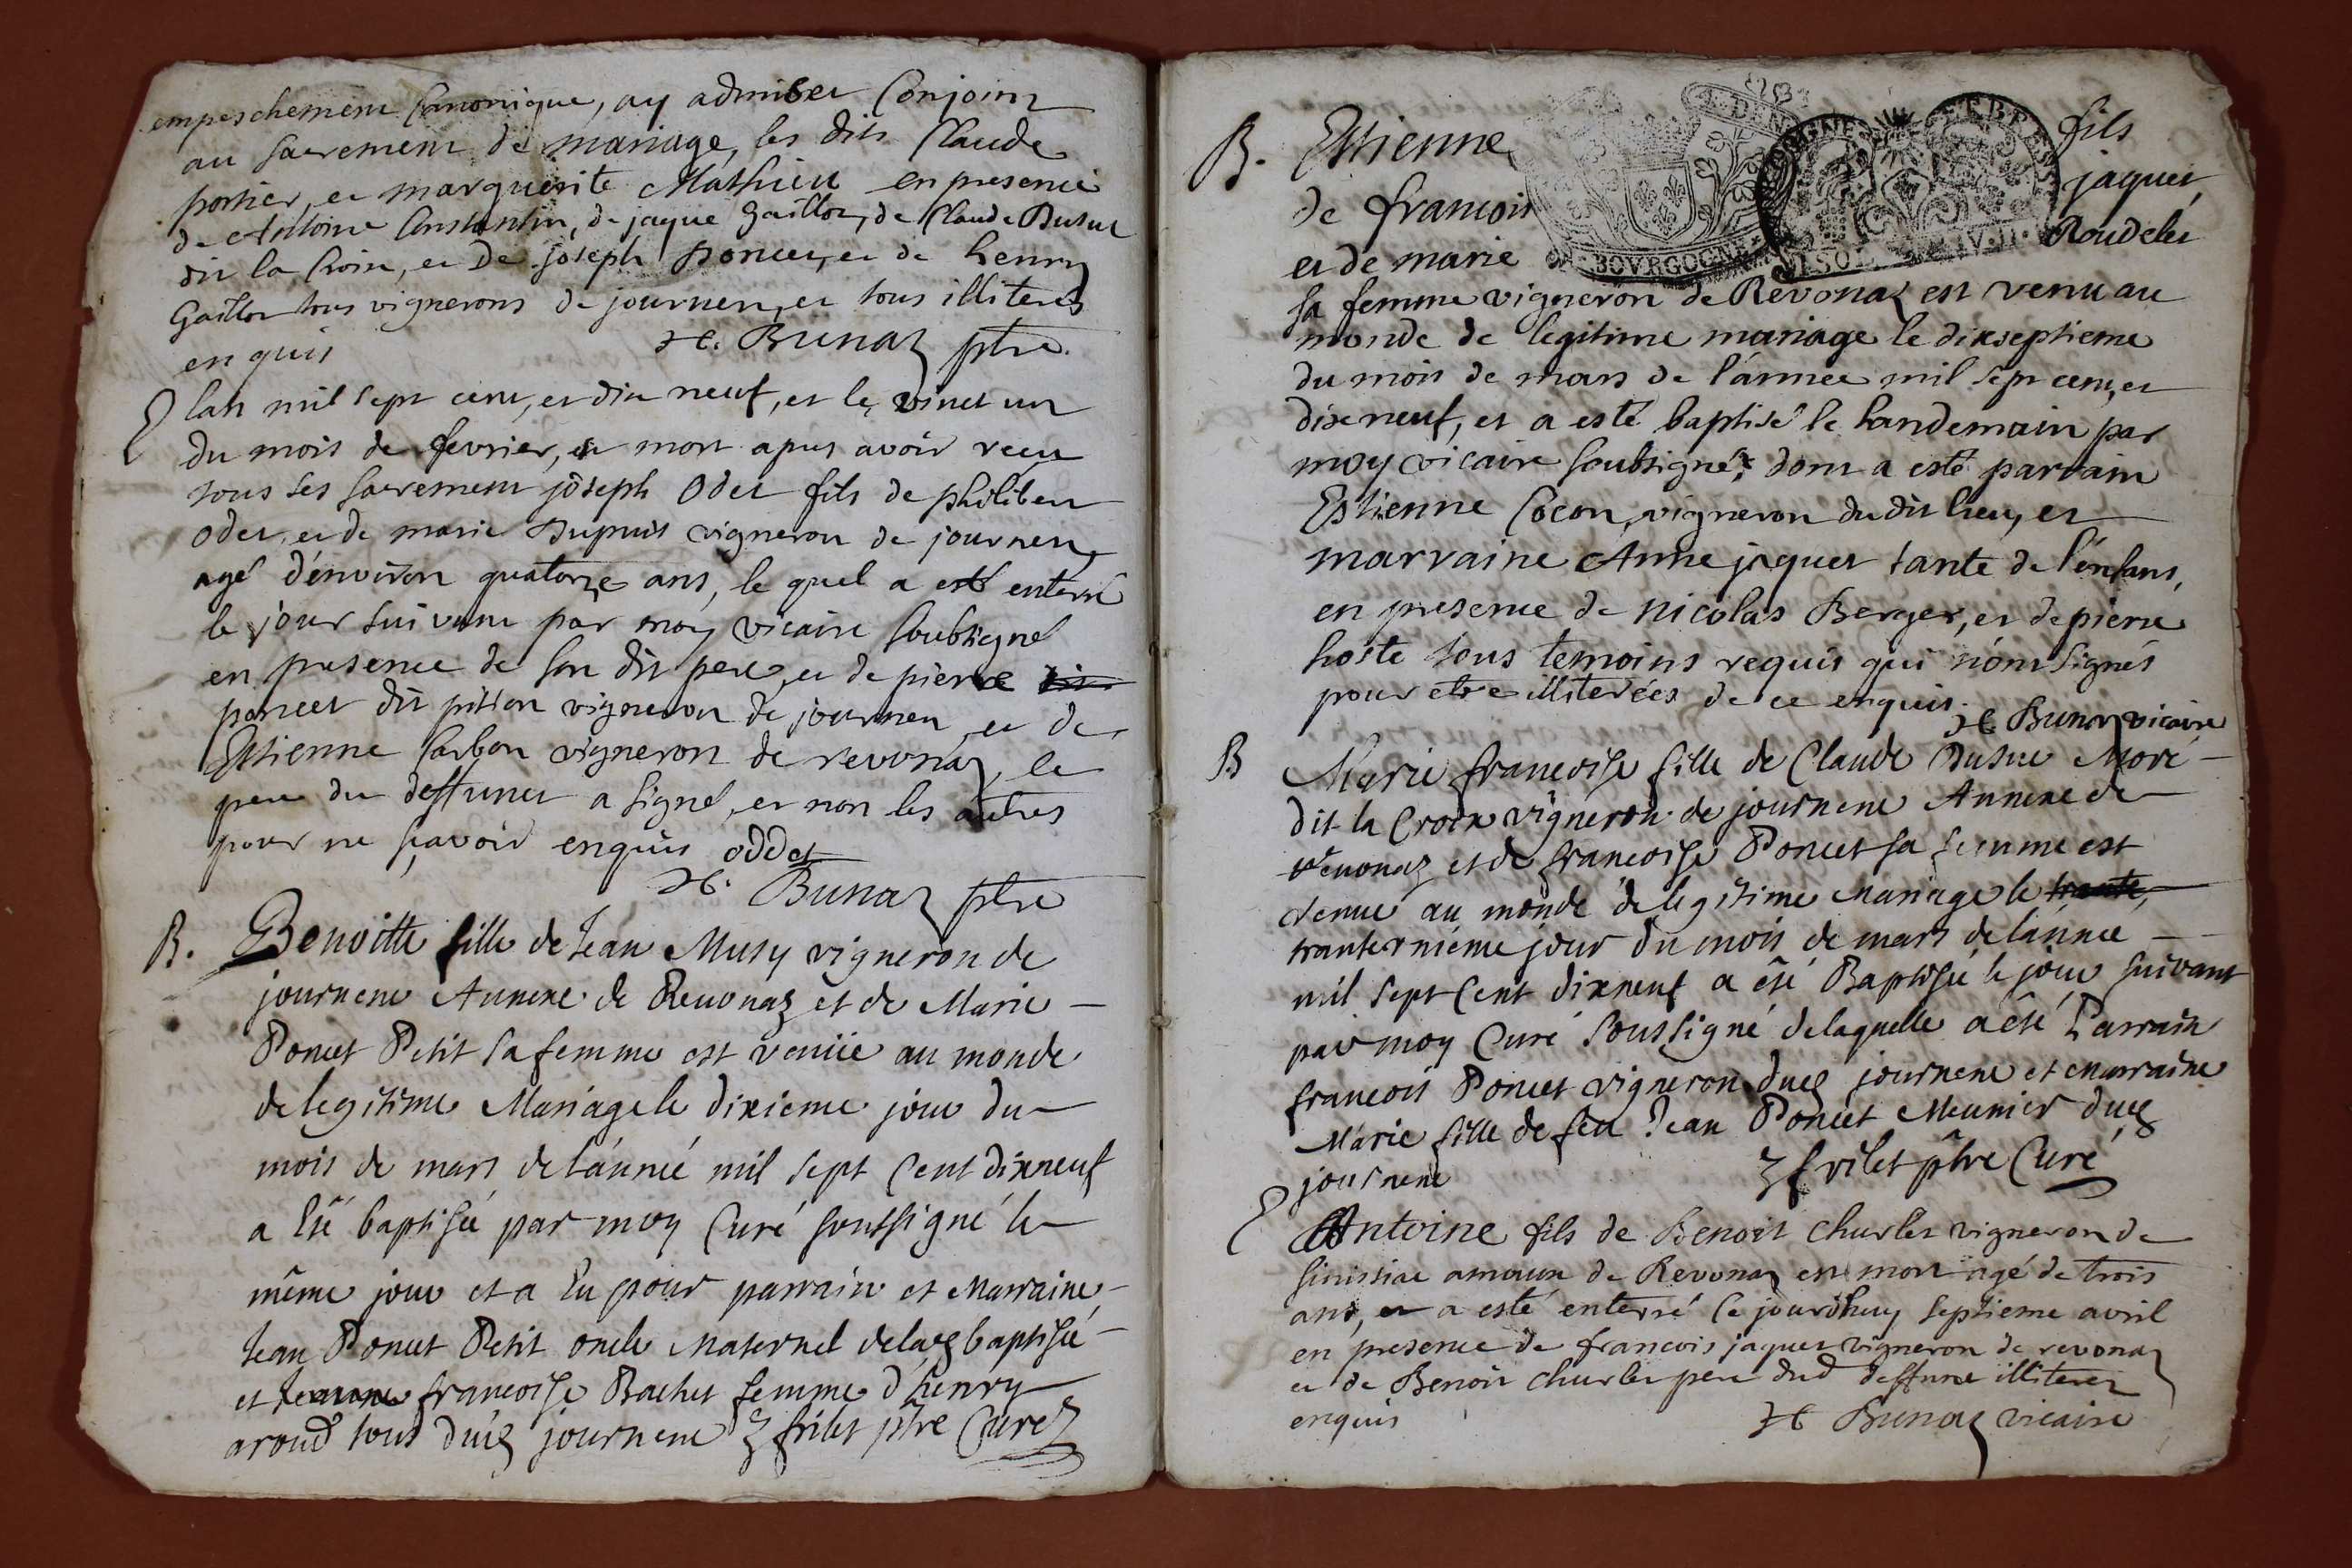 empeschement Canonique, ay admis et Conjoint
au sacrement de mariage, les dits Claude
portier, et marguerite Mathieu en presence
de Antoine Constantin, de jaque Gaillot, de Claude Dusuc
dit la Croix, et De joseph poncet, et de henry
Gaillot tous vignerons de journen, et tous illiterés
enquis H. Bunaz ptre
lan mil sept cent, et dix neuf, et le vinct un
du mois de fevrier, est mort apres avoir reçu
tous ses sacrements joseph Odet fils de philibert
Odet, et de marie Dupuis vigneron de journen,
agé d'environ quatorze ans, le quel a esté enterré
le jour suivant par moy vicaire soubsigné
en presence de son dit pere, et de pierre
poncet dit pitton vigneron de journen, et de
Estienne Carbon vigneron de revonaz, le
pere du deffunct a signé, et non les autres
pour ne sçavoir enquis oddet
H. Bunaz ptre
B. Benoitte fille de Jean Musy vigneron de
journene Annexe de Revonaz et de Marie
Poncet Petit sa femme est venüe au monde
de legitime Mariage le dixieme jour du
mois de mars de l'année mil sept Cent dixneuf
a êté baptisée par moy Curé soussigné le
même jour et a eu pour parrain et Marraine
Jean Poncet Petit oncle Maternel de lad baptisée
et francoise Bachet femme d'henry
aroud tous dud journene frilet ptre Curé
B. Estienne fils
de francois jaquet
et de marie Roudelet
DE BOVRGOGNE
sa femme vigneron de Revonaz est venu au
monde de legitime mariage le dixseptieme
du mois de mars de l'année mil sept cent, et
dixneuf, et a esté baptisé le landemain par
moy vicaire soubsigné; dont a esté parrain
Estienne Cocon, vigneron du dit lieu, et
marraine Anne jaquet tante de l'enfant,
en presence de nicolas Berger, et de pierre
hoste tous temoins requis qui n'ont signés
pour etre illiterées de ce enquis.
H Bunaz vicaire
B Marie francoise fille de Claude Dusuc Moré
dit la Croix vigneron de journene Annexe de
revonaz et de francoise Poncet sa femme est
venue au monde de legitime Mariage le trante
trante nieme jour du mois de mars de l'année
mil sept Cent dixneuf a êté Baptisée le jour suivant
par moy Curé soussigné de laquelle a êté Parrain
francois Poncet vigneron dud journene et marraine
Marie fille de feu Jean Poncet Meunier dud
journene frilet ptre Curé
Antoine fils de Benoit Churlet vigneron de
Sinissiat de Revonaz est mort agé de trois
ans, et a esté enterré ce jourdhuy septieme avril
en presence de francois jaquet vigneron de revonaz
et de Benoit Churlet pere dud deffunt illiterez
enquis H Bunaz vicaire